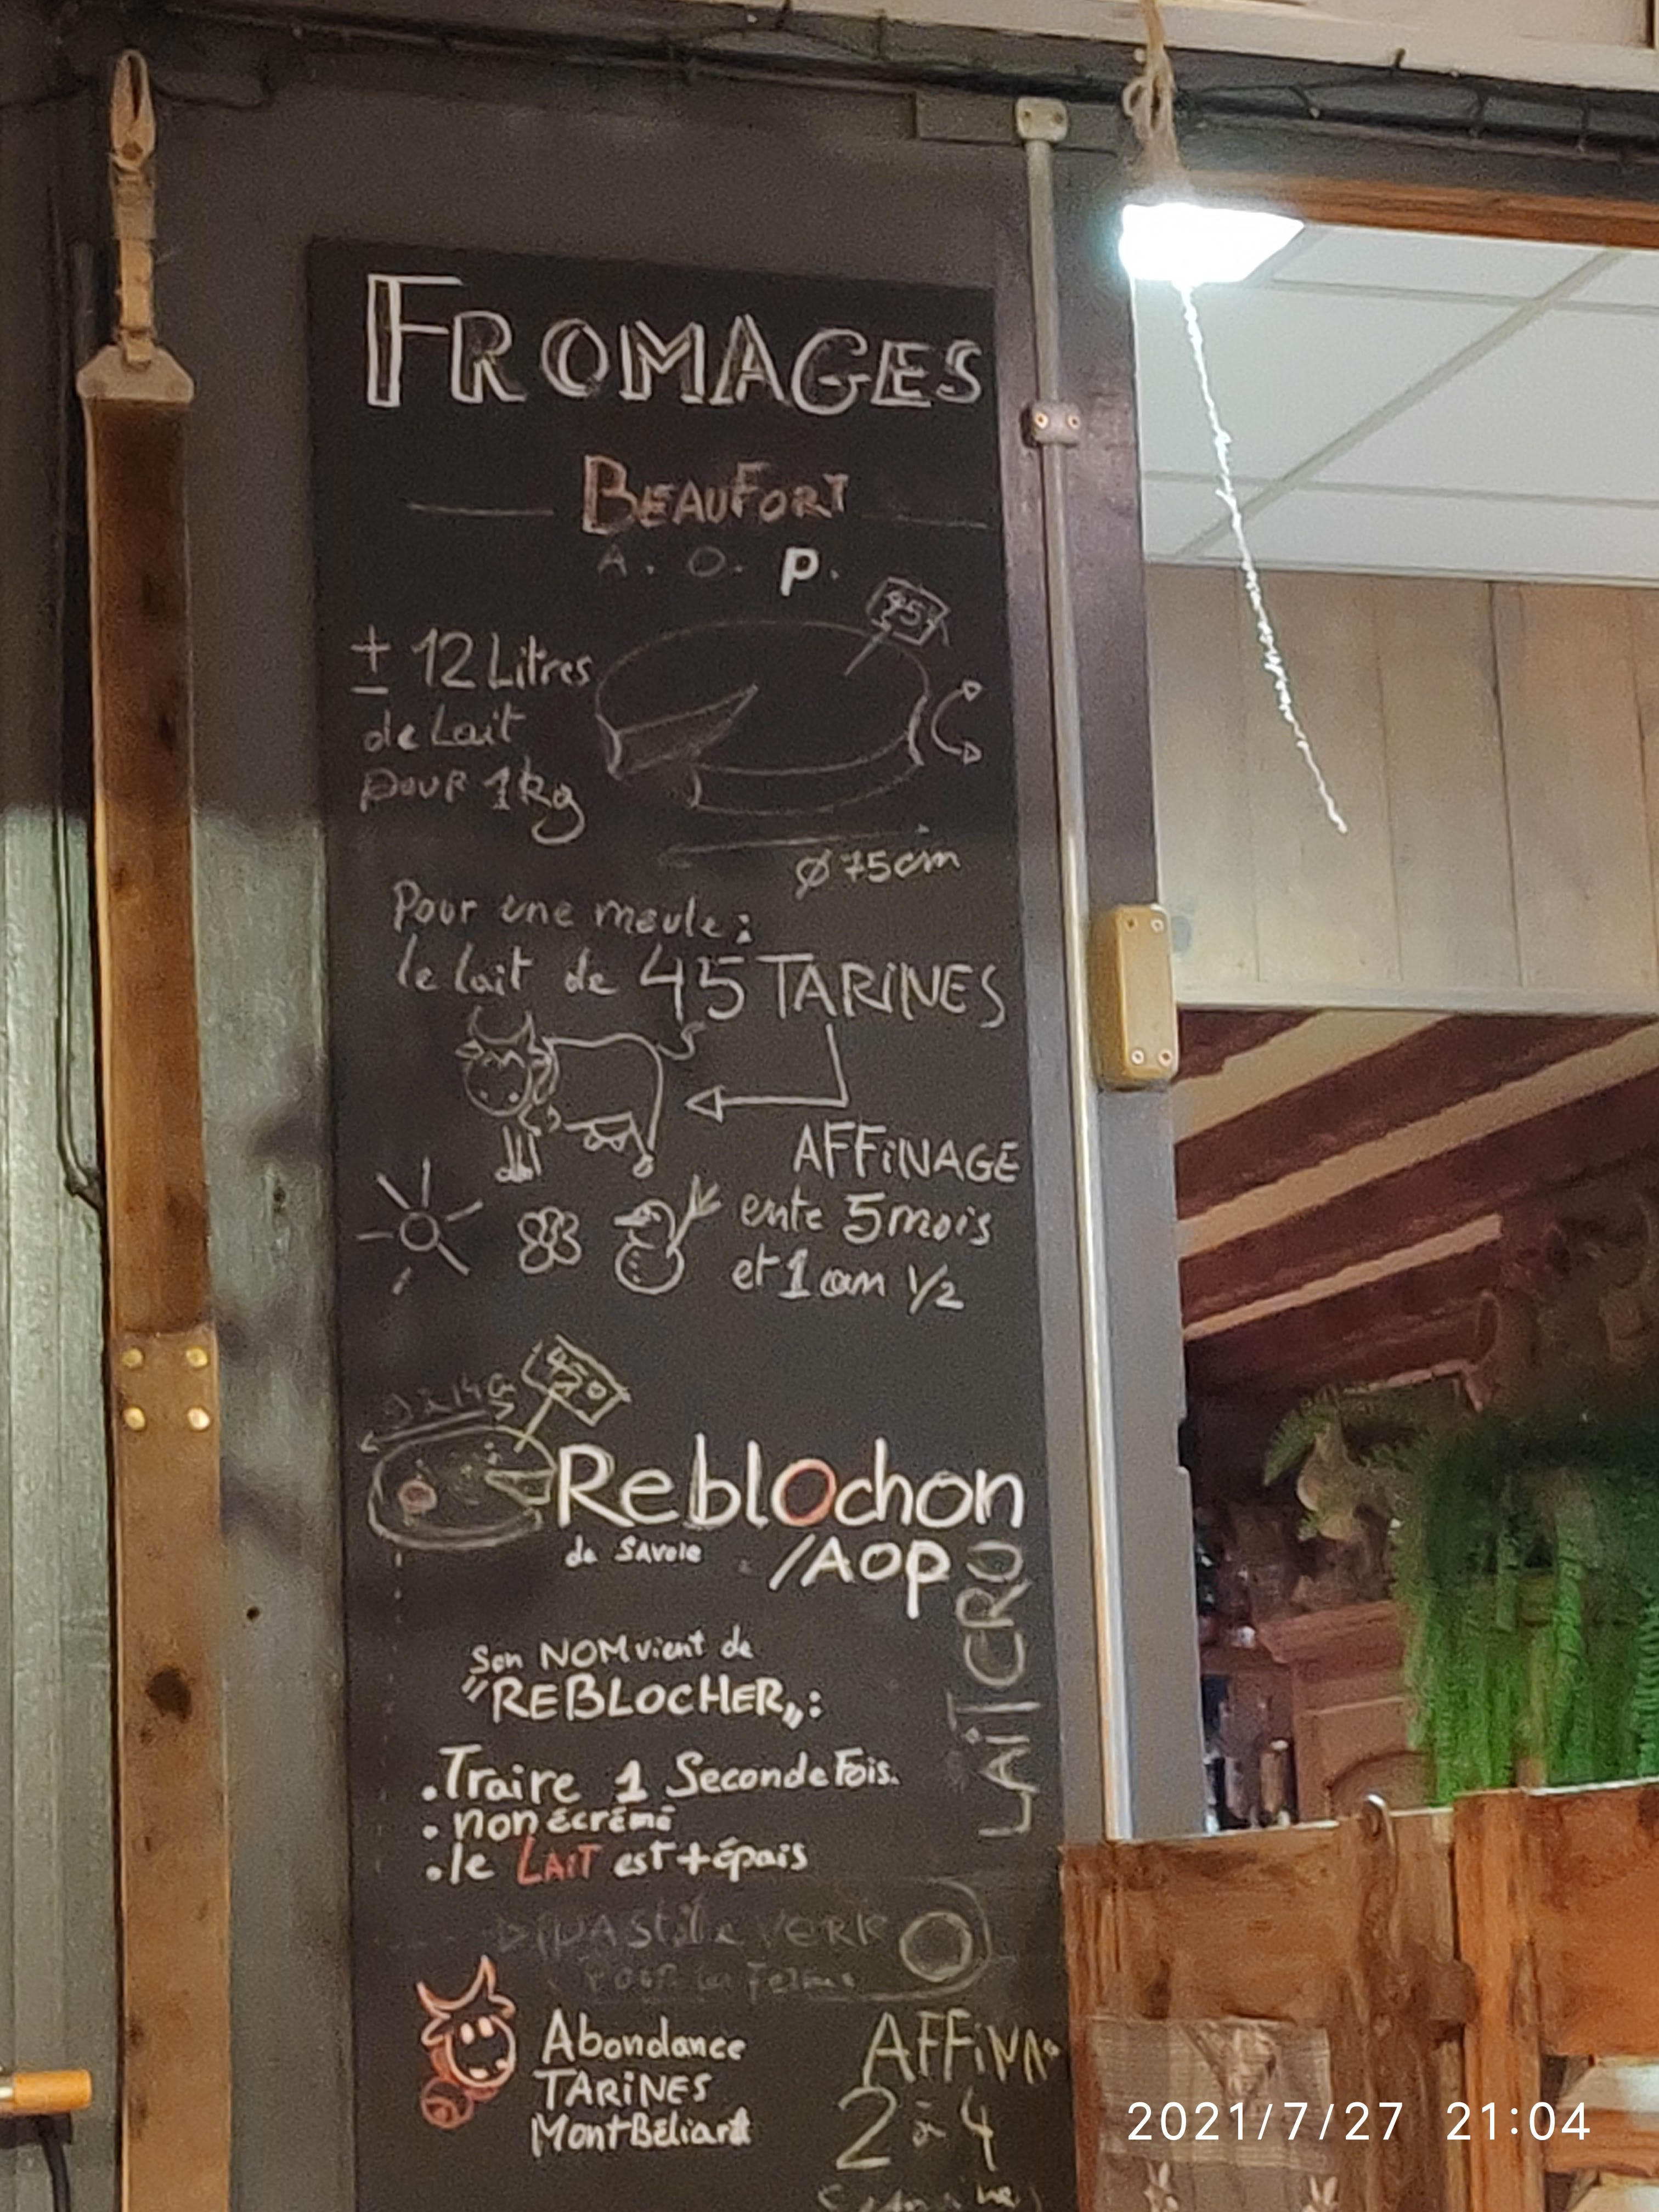 FROMAGES
BEAUFORT
A. O. P.
± 12 Litres
de Lait
pour 1kg
Ø 75cm
Pour une meule:
le lait de 45 TARINES
AFFINAGE
ente 5 mois
et 1 an 1/2
Reblochon
de SAVOIE /AOP
LAIT CRU
Son NOM vient de
"REBLOCHER":
.Traire 1 Seconde Fois.
. non écrémé
.le LAIT est + épais
Abondance
TARINES
MontBéliard
AFFINA
2 à 4
2021/7/27 21:04